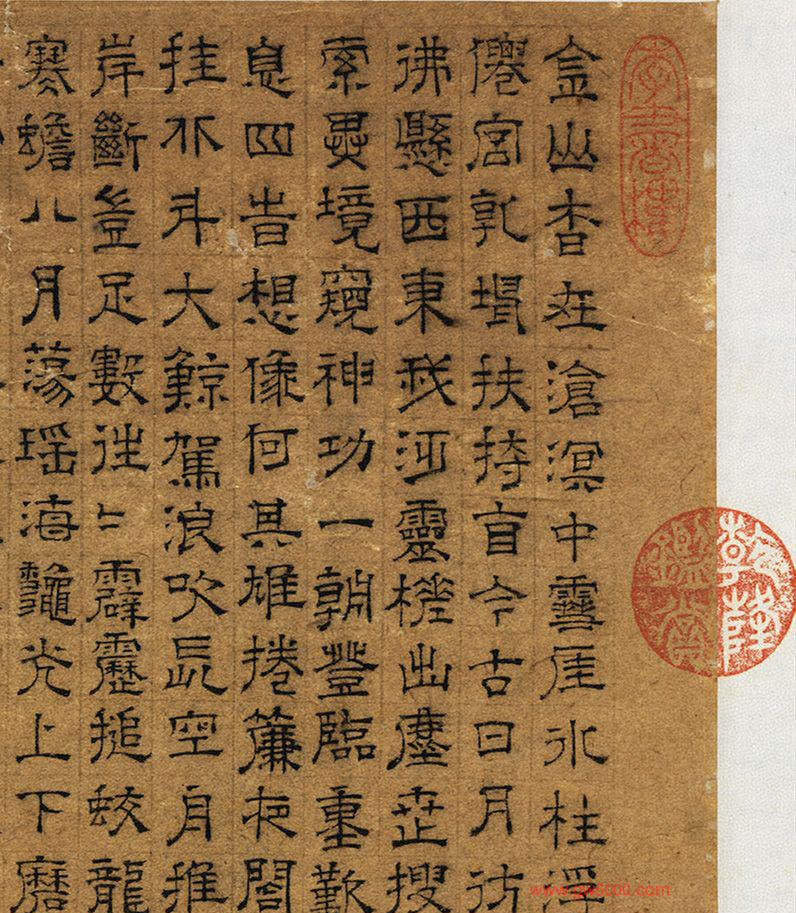 金山杳在滄溟中雪崖冰柱浮
僊宮乾坤扶持自今古日月彷
彿懸西東我泛靈槎出塵世搜
索異境窺神功一朝登臨重歎
息四旹想像何其雄捲簾夜閣
挂北斗大鯨駕浪吹長空舟摧
岸斷豈足數往〻霹靂搥蛟龍
寒蟾八月蕩瑤海龝光上下磨